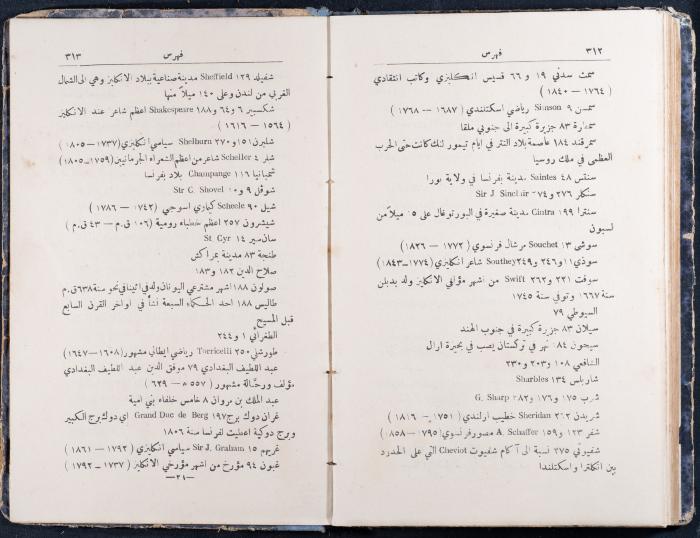 ٣١٢
فهرس
سمث سدني ١٩ و ٦٦ قسيس انكليزي وكاتب انتقادي
( ١٧٦٤ — ١٨٤٠ )
سمسن ٩ Simson رياضي اسكتلندي ( ١٦٨٧ — ١٧٦٨ )
سمطرة ٨٣ جزيرة كبيرة الى جنوبي ملقا
سمرقند ١٨٤ عاصمة بلاد التتر في ايام تيمور لنك كانت حتى الحرب
العظمى في ملك روسيا
سنتس ٤٨ Saintes مدينة بفرنسا في ولاية
سنكلر ٢٧٦ و ٢٧٤ Sir J. Sinclair
سنترا ١٩٩ Cintra مدينة صغيرة في البورتوغال على ١٥ ميلاً من
لسبون
سوشى ١٣ Souchet مرشال فرنسوي ( ١٧٧٢ — ١٨٢٦ )
سوذي ١١ و ٢٤٦ و ٢٤٩ Southey شاعر انكليزي (١٧٧٤—١٨٤٣)
سوفت ٢٢١ و ٢٦٢ Swift من اشهر مؤلفي الانكليز ولد بدبلن
سنة ١٦٦٧ وتوفي سنة ١٧٤٥
السيوطي ٧٩
سيلان ٨٣ جزيرة كبيرة في جنوب الهند
سيحون ١٨٤ نهر في تركستان يصب في بحيرة ارال
الشافعي ١٠٨ و ٢٠٣ و ٢٣٠
شاربلس ١٣٤ Sharbles
شرب ١٧٥ و ١٧٦ و ٢٨٢ G. Sharp
شريدن ٢٦٢ Sheridan خطيب ارلندي ( ١٧٥١ — ١٨١٦ )
شفر ١٢٣ و ١٥٩ A. Schaffer مصور فرنسوي (١٧٩٥—١٨٥٨)
شفيوتي ٢٧٥ نسبة الى آكام شفيوت Cheviot التي على الحدود
بين انكلترا واسكتلندا
فهرس
٣١٣
شفيلد ١٢٩ Sheffield مدينة صناعية ببلاد الانكليز وهي الى الشمال
الغربي من لندن وعلى ١٤٠ ميلاً منها
شكسبير ٦ و ٦٤ و ١٨٨ Shakespeare اعظم شاعر عند الانكليز
( ١٥٦٤ — ١٦١٦ )
شلبرن ١٥١ و ٢٧٠ Shelburn سياسي انكليزي (١٧٣٧—١٨٠٥)
شلر ٤ Scheller شاعر من اعظم الشعراء الجرمانيين (١٧٥٩—١٨٠٥)
شمبانيا ١١٦ Champange بلاد بفرنسا
شوڤل ٩ و ١٠ Sir C. Shovel
شيل ٩٠ Scheele كيماوي اسوجي ( ١٧٤٢ — ١٧٨٦ )
شيشرون ٢٥٧ اعظم خطباء رومية ( ١٠٦ ق.م — ٤٣ ق.م )
سان سير ١٤ St. Cyr
طنجة ٨٣ مدينة بمراكش
صلاح الدين ١٨٢ و ١٨٣
صولون ١٨٨ اشهر مشترعي اليونان ولد في اثينا في نحو سنة ٦٣٨ ق.م
طاليس ١٨٨ احد الحكماء السبعة نشأ في اواخر القرن السابع
قبل المسيح
الطغرائي ١ و ٢٤٤
طورشلي ٢٥٠ Torricelli رياضي ايطالي مشهور (١٦٠٨—١٦٤٧)
عبد اللطيف البغدادي ٧٩ موفق الدين عبد اللطيف البغدادي
مؤلف ورحّالة مشهور ( ٥٥٧ ه — ٦٢٩ )
عبد الملك بن مروان ٨ خامس خلفاء بني امية
غران دوك برج ١٩٧ Grand Duc de Berg اي دوك برج الكبير
وبرج دوكية اعطيت لفرنسا سنة ١٨٠٦
غريهم ١٥ Sir J. Graham سياسي انكليزي ( ١٧٩٢ — ١٨٦١ )
غبون ٩٤ مؤرخ من اشهر مؤرخي الانكليز ( ١٧٣٧ — ١٧٩٢ )
— ٢١ —